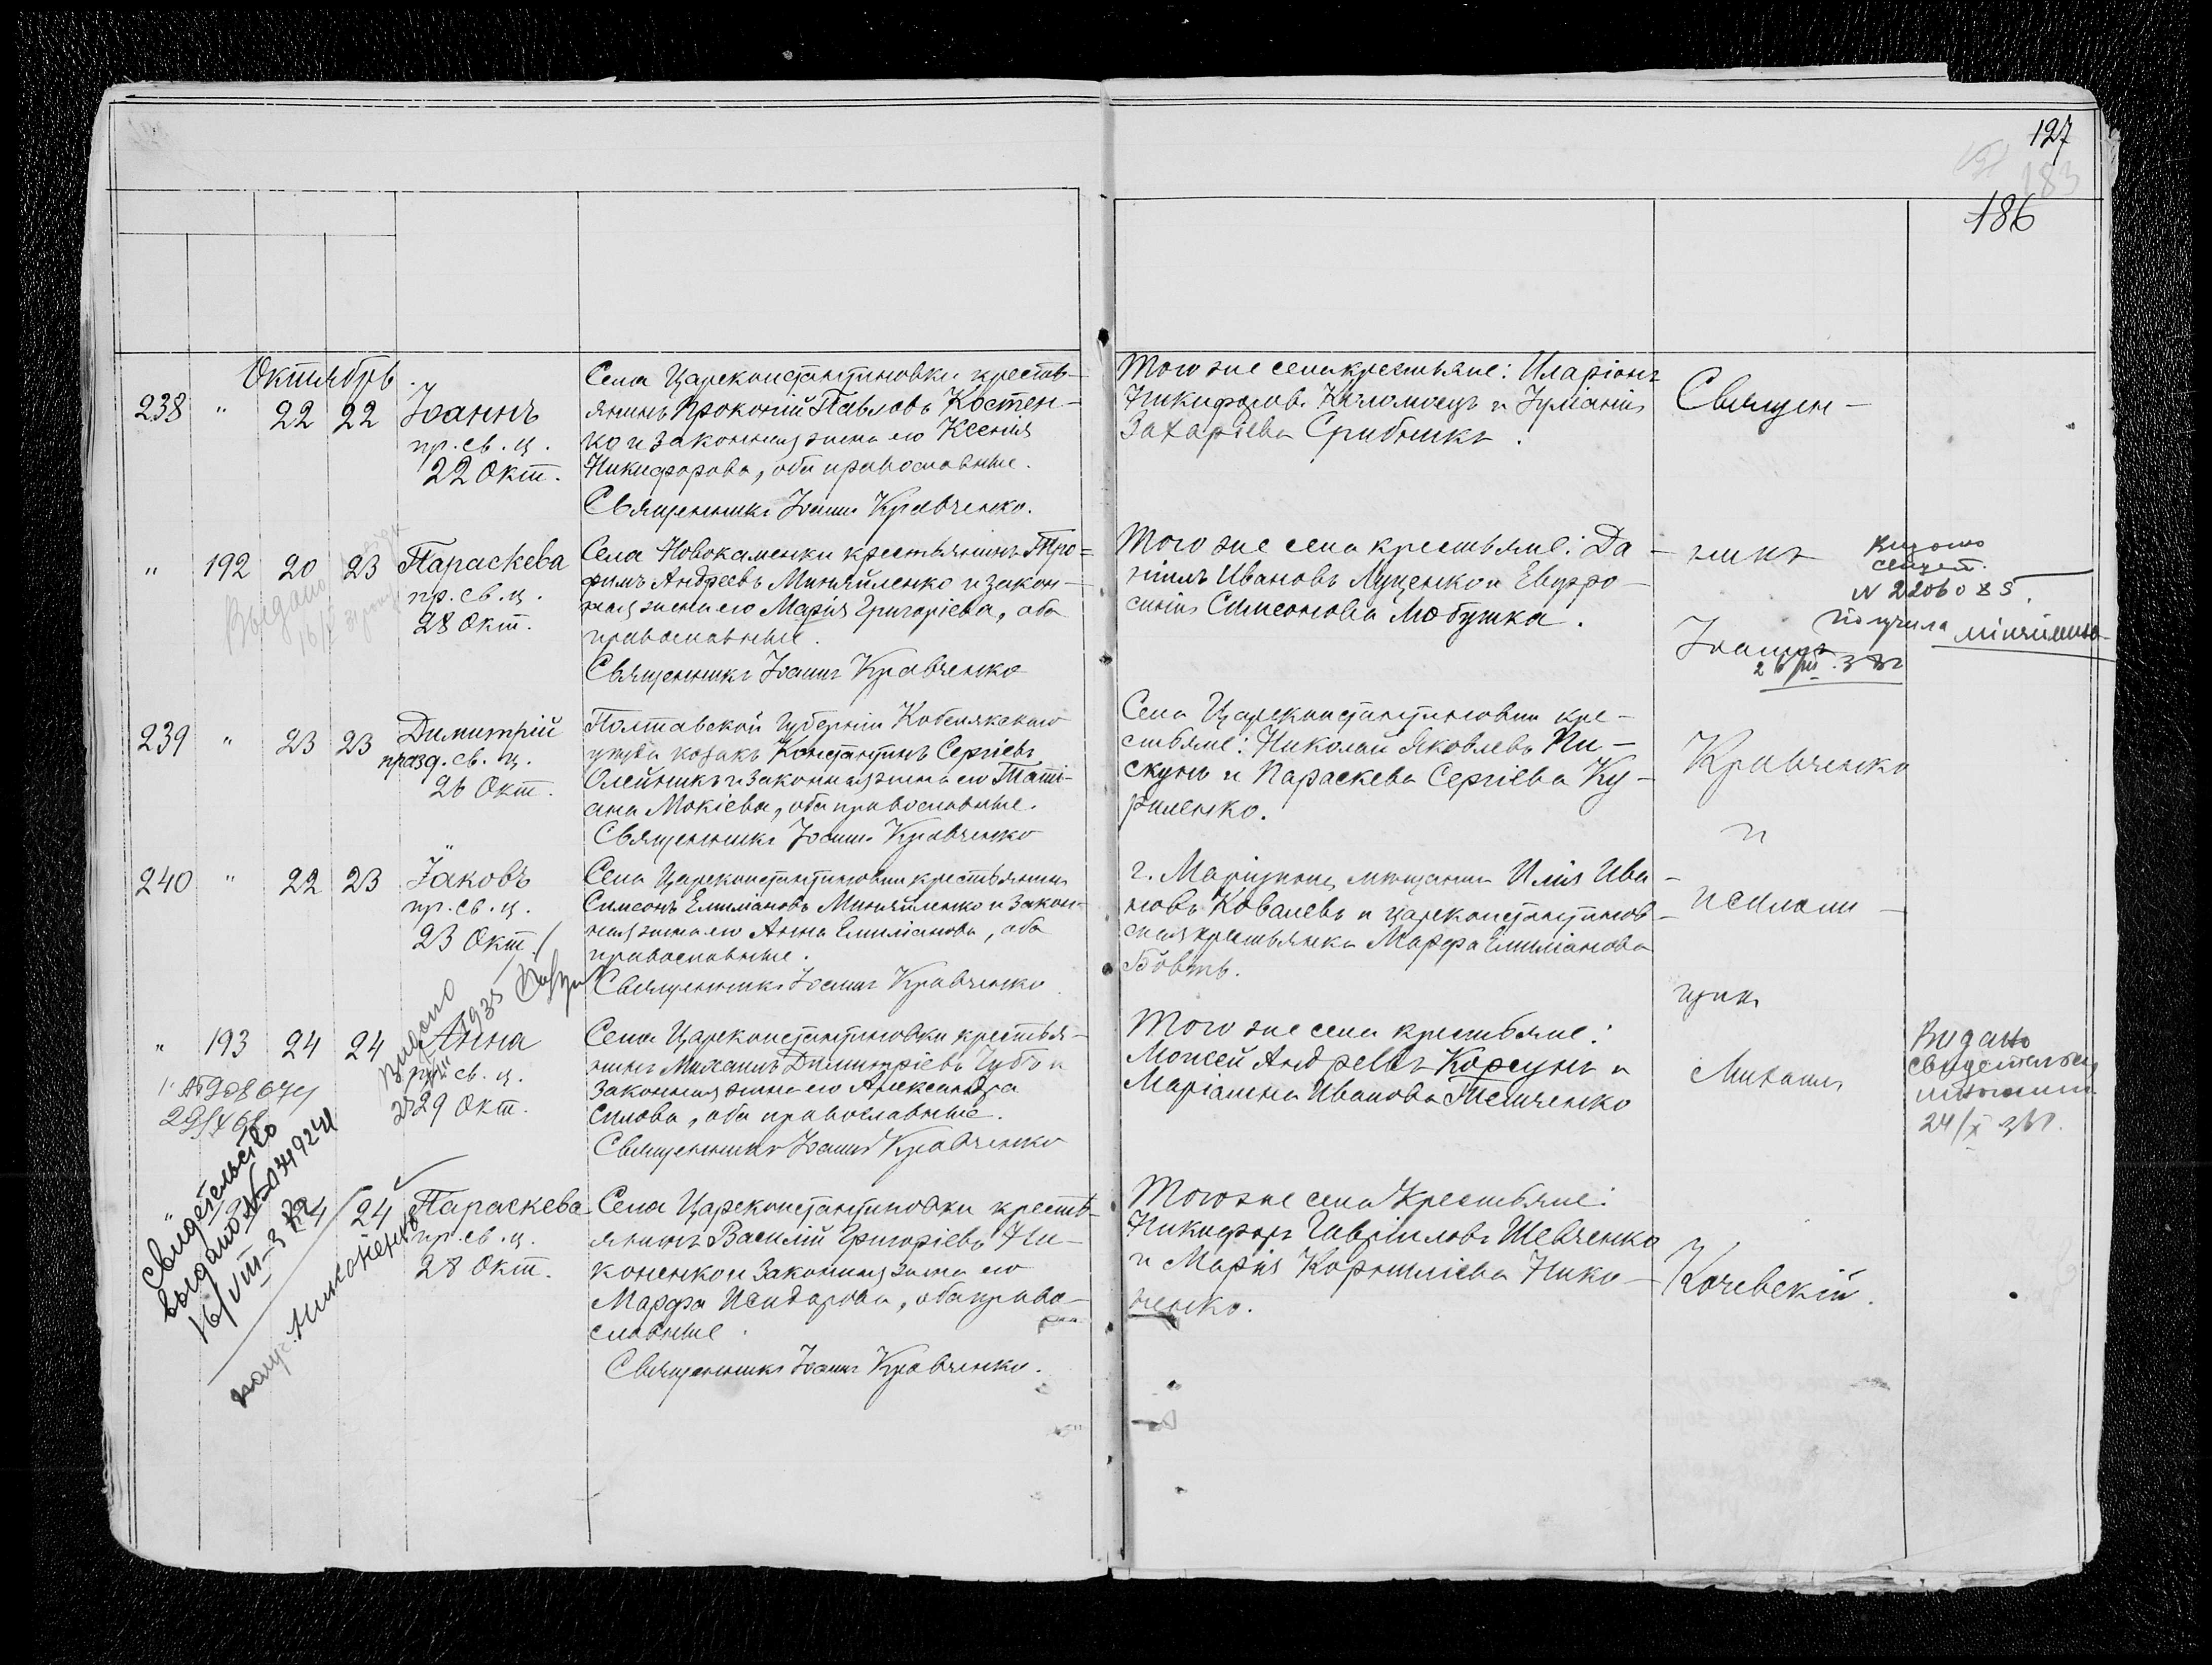 127
183
186
Октябрь.
238 " 22 22 Іоаннъ
пр. св. ц.
22 Окт.
Села Цареконстантиновки кресть-
янинъ Прокопій Павловъ Костен-
ко и законная жена его Ксенія
Никифорова, оба православные.
Священникъ Іоаннъ Кравченко.
Того же села крестьяне: Иларіонъ
Никифоровъ Коломоецъ и Іуліанія
Захаріева Срибникъ.
Священ-
" 192 20 23 Параскева
пр. св. ц.
28 Окт.
Выдано
Села Новокаменки крестьянинъ Тро-
фимъ Андреевъ Миняйленко и закон-
ная жена его Марія Григоріева, оба
православные.
Священникъ Іоаннъ Кравченко
Того же села крестьяне: Да-
ніилъ Ивановъ Луценко и Евфро-
синія Симеонова Мобушка.
никъ
Іоаннъ
Видано
свидет.
N 2206085.
Получила Міняйленко
239 " 23 23 Димитрій
празд. св. ц.
26 Окт.
Полтавской губерніи Кобелякскаго
уезда козакъ Константинъ Сергіевъ
Олейникъ и законная жена его Таті-
ана Мокіева, оба православные.
Священникъ Іоаннъ Кравченко
Села Цареконстантиновки кре-
стьяне: Николай Яковлевъ Пи-
скунъ и Параскева Сергіева Ку-
риленко.
Кравченко
и
240 " 22 23 Іаковъ
пр. св. ц.
23 Окт.
Села Цареконстантиновки крестьянинъ
Симеонъ Емиліановъ Миняйленко и закон-
ная жена его Анна Емиліанова, оба
православные.
Священникъ Іоаннъ Кравченко
г. Маріуполя мещанинъ Илія Ива-
новъ Ковалевъ и цареконстантинов-
ская крестьянка Марфа Емиліанова
Бовтъ.
псалом-
щикъ
Видано
1935
" 193 24 24 Анна
пр. св. ц.
29 Окт.
Села Цареконстантиновки крестья-
нинъ Михаилъ Димитріевъ Чубъ и
законная жена его Александра
Силова, оба православные.
Священникъ Іоаннъ Кравченко
Того же села крестьяне:
Моисей Андреевъ Корсунъ и
Маріанна Иванова Темченко
Михаилъ
Видано
24/X
Свидетельство
выдано N 0319241
16/VIII-3
получ. Никоненко
24 24 Параскева
пр. св. ц.
28 Окт.
Села Цареконстантиновки кресть-
янинъ Василій Григоріевъ Ни-
коненко и законная жена его
Марфа Исидорова, оба право-
славные.
Священникъ Іоаннъ Кравченко.
Того же села крестьяне:
Никифоръ Гавріиловъ Шевченко
и Марія Корниліева Нико-
ненко.
Кочевскій.